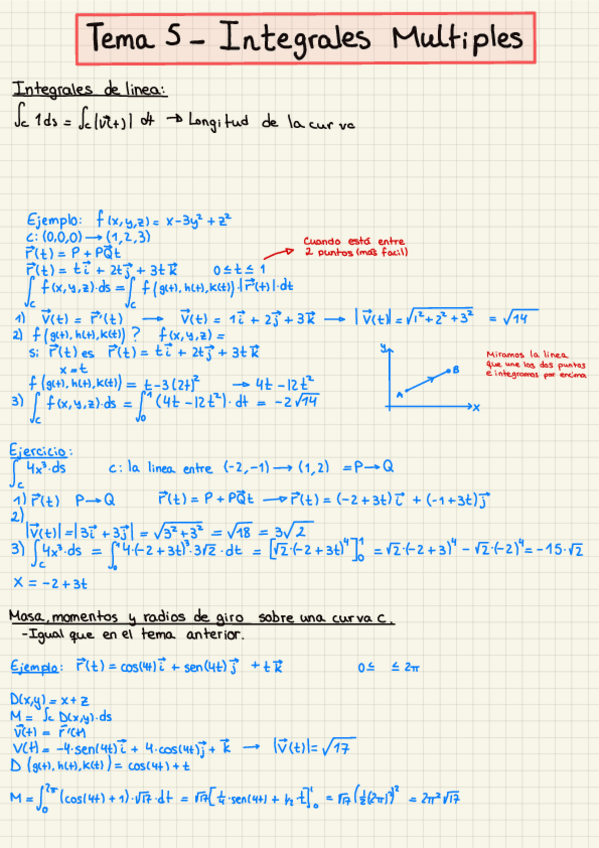 Tema 5 - Integrales Multiples
Integrales de linea:
∫c 1ds = ∫c |v⃗(t)| dt → Longitud de la curva
Ejemplo: f(x,y,z) = x-3y² + z²
c: (0,0,0) → (1,2,3)
r⃗(t) = P + PQ⃗t
Cuando está entre
2 puntos (mas facil)
r⃗(t) = t i⃗ + 2t j⃗ + 3t k⃗   0 ≤ t ≤ 1
∫c f(x,y,z)·ds = ∫c f(g(t), h(t), k(t))·|r⃗(t)|·dt
1) v⃗(t) = r⃗'(t) → v⃗(t) = 1i⃗ + 2j⃗ + 3k⃗ → |v⃗(t)| = √1² + 2² + 3² = √14
2) f(g(t), h(t), k(t))? f(x,y,z) =
si r⃗(t) es r⃗(t) = t i⃗ + 2t j⃗ + 3t k⃗
x = t
f(g(t), h(t), k(t)) = t-3(2t)² → 4t-12t²
3) ∫c f(x,y,z)·ds = ∫₀¹ (4t-12t²)·dt = -2√14
y
A
B
x
Miramos la linea
que une los dos puntos
e integramos por encima
Ejercicio:
∫c 4x³·ds   c: la linea entre (-2,-1) → (1,2) = P → Q
1) r⃗(t) P → Q   r⃗(t) = P + PQ⃗t → r⃗(t) = (-2+3t) i⃗ + (-1+3t) j⃗
2)
|v⃗(t)| = |3i⃗ + 3j⃗| = √3²+3² = √18 = 3√2
3) ∫c 4x³·ds = ∫₀¹ 4·(-2+3t)³·3√2·dt = [√2·(-2+3t)⁴]₀¹ = √2·(-2+3)⁴ - √2·(-2)⁴ = -15·√2
x = -2+3t
Masa, momentos y radios de giro sobre una curva c.
-Igual que en el tema anterior.
Ejemplo: r⃗(t) = cos(4t) i⃗ + sen(4t) j⃗ + t k⃗   0 ≤   ≤ 2π
D(x,y) = x + z
M = ∫c D(x,y)·ds
v⃗(t) = r⃗'(t)
v(t) = -4·sen(4t) i⃗ + 4·cos(4t) j⃗ + k⃗ → |v⃗(t)| = √17
D (g(t), h(t), k(t)) = cos(4t) + t
M = ∫₀²π (cos(4t) + 1)·√17·dt = √17 [¼·sen(4t) + ½ t]₀¹ = √17 (½(2π)²)² = 2π²√17